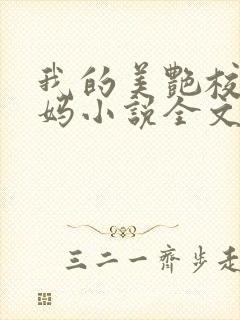 我的美艷校
妈小説全文
三二一齊步走